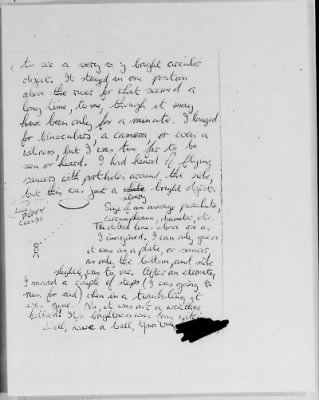 to see a very v ig bright circular
object. It stayed in one position
above the river for what seemed a
long time, to me, though it may
have been only for a minute. I longed
for binoculars, a camera or even a
witness but I was too far to be
seen or heard. I had heard of flying
saucers with portholes around the side,
but this was just a bright object
silvery
Size of an average parachute,
circumference, diameter, etc.
The dotted lines above are as
I imagined. I can only guess
it was as a plate, or saucer
as only the bottom, and side
slightly, was to me. After an eternity,
I moved a couple of steps (I was going to
run for aid) when in a twinkling it
was gone. No, it was not a weather
balloon. Its brightness was